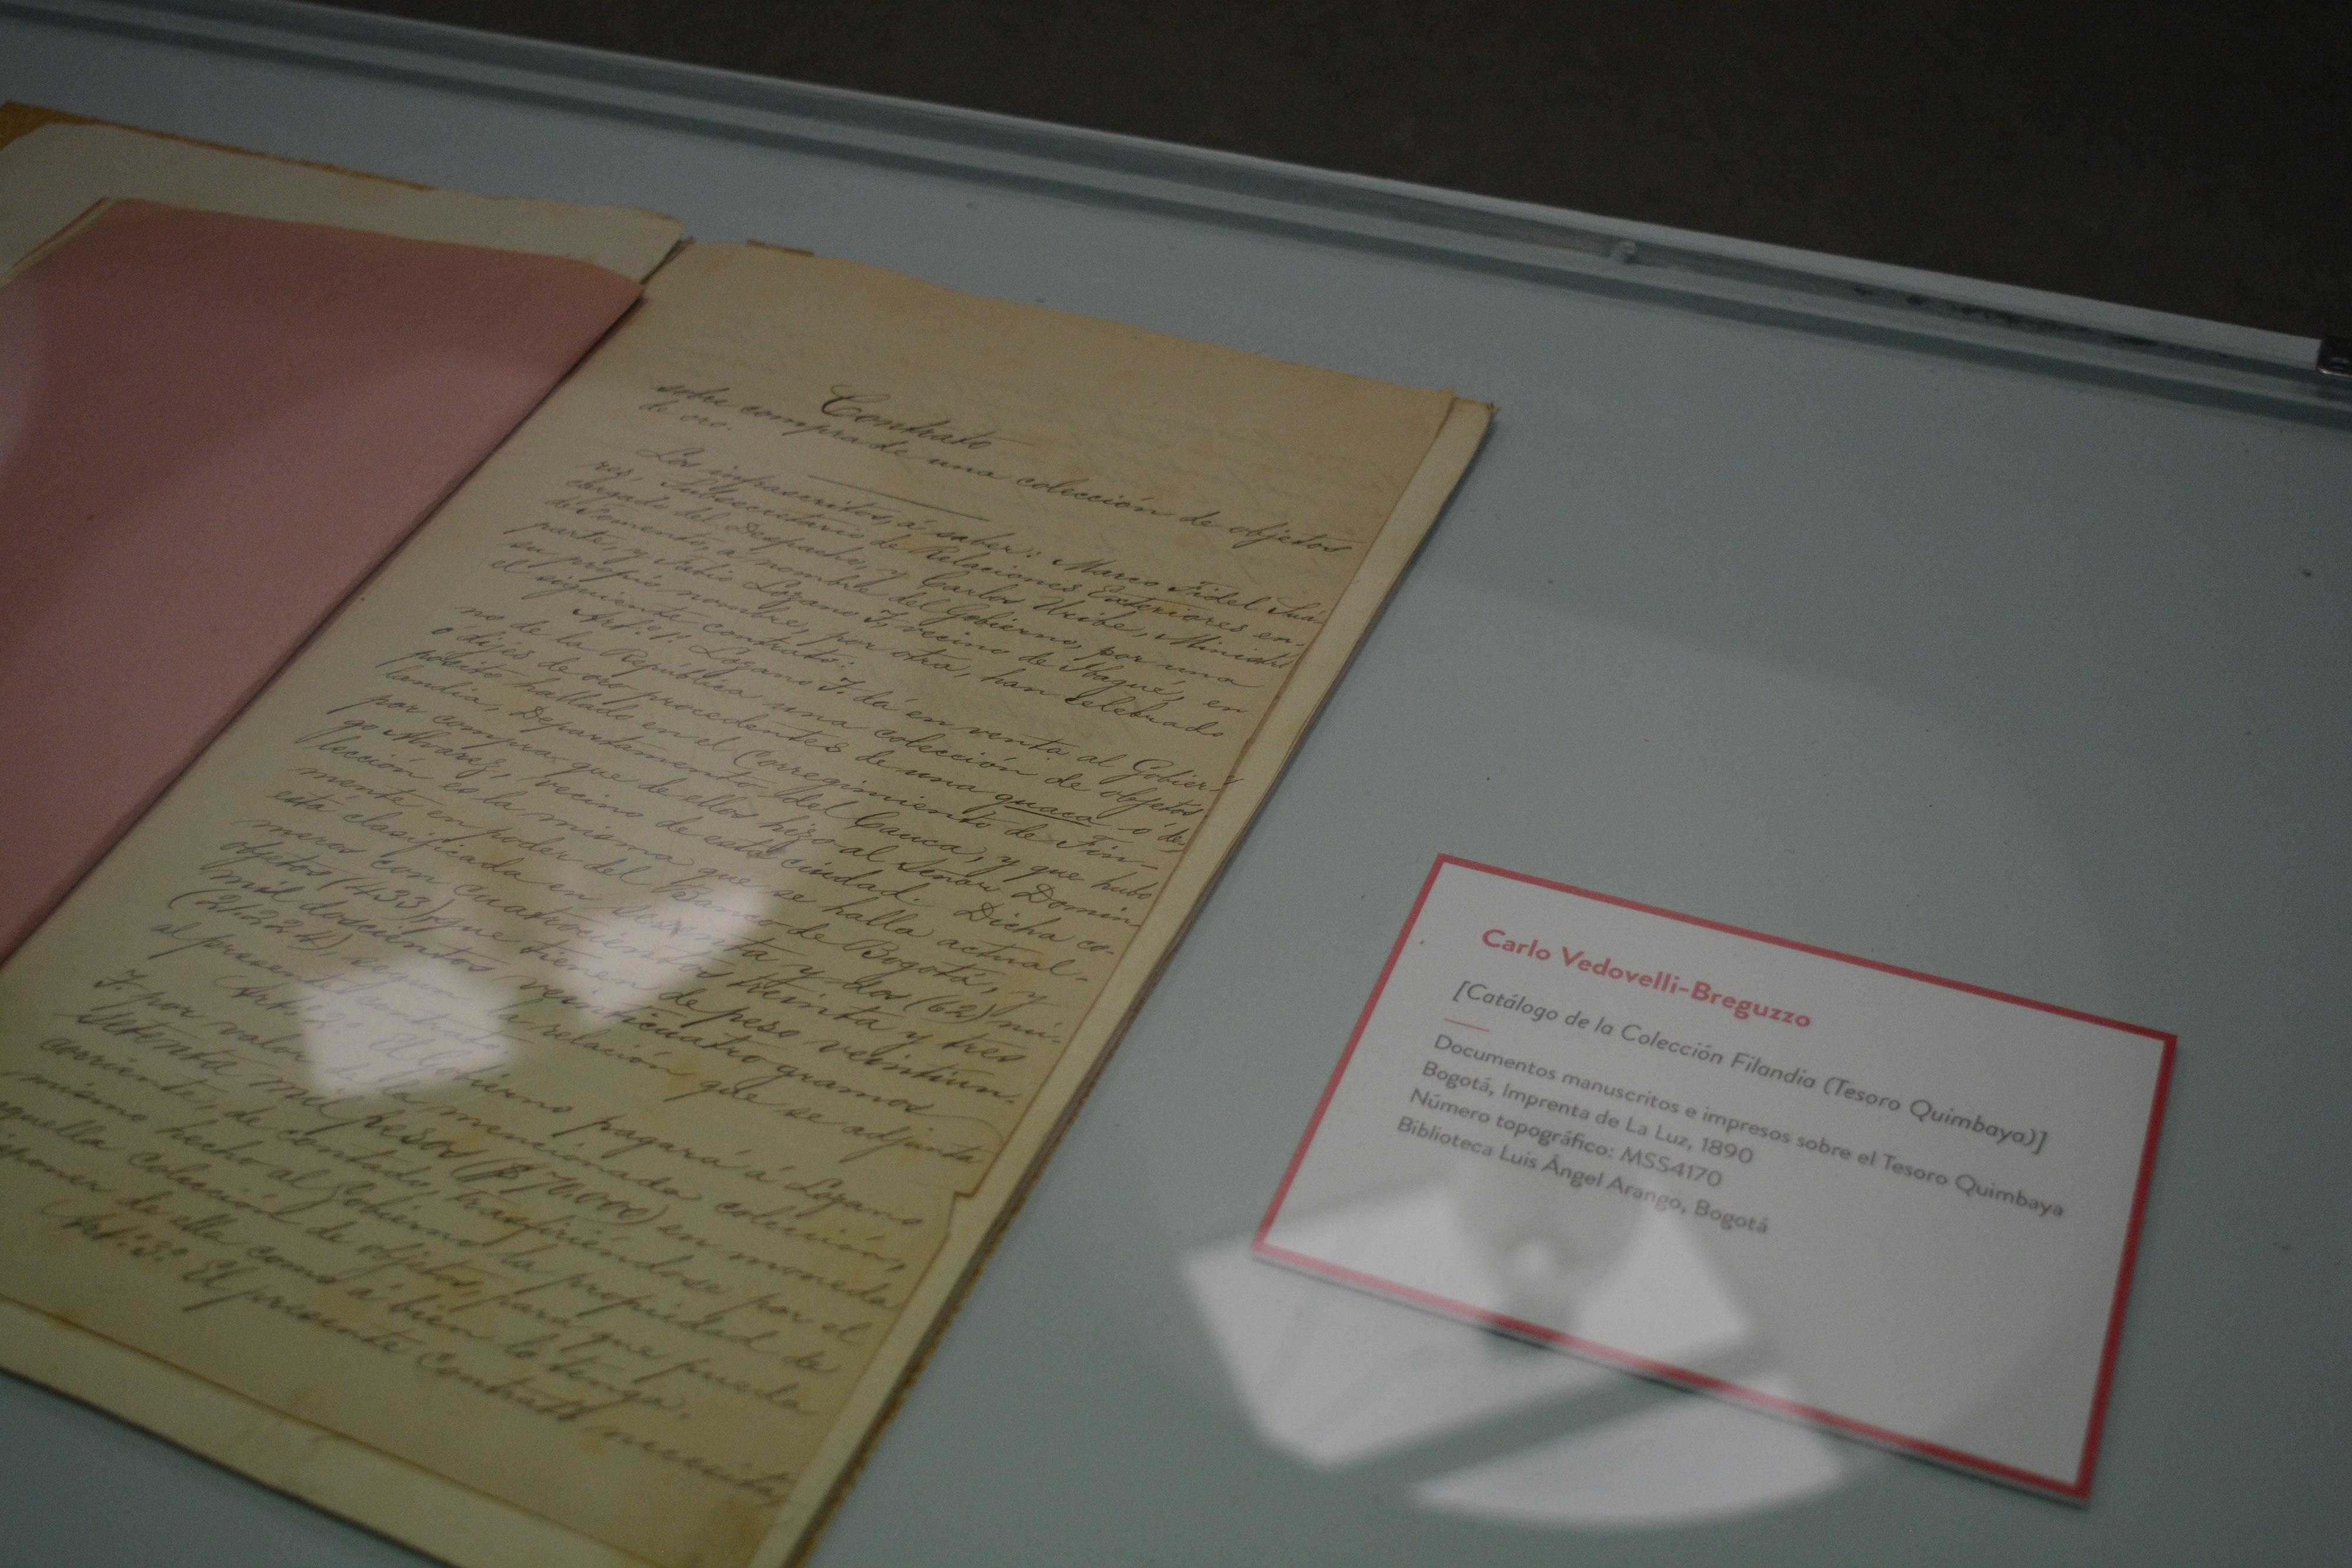 Contrato
sobre compra de una colección de objetos
de oro.
Los infrascritos, á saber: Marco Fidel Suá-
rez, Subsecretario de Relaciones Exteriores en-
cargado del Despacho, y Carlos Uribe, Ministro
de Fomento, a nombre del Gobierno, por una
parte, y Fabio Lozano T, vecino de Ibagué, en
su propio nombre, por otra, han celebrado
el siguiente contrato:
Art.º 1º Lozano T. dá en venta al Gobier-
no de la República una colección de objetos
ó dijes de oro procedentes de una guaca o de-
pósito hallado en el Corregimiento de Fin-
landia, Departamento del Cauca, y que hubo
por compra que de ellos hizo al Señor Domin
go Alvarez, vecino de esta ciudad. Dicha co-
lección es la misma que se halla actual-
mente en poder del Banco de Bogotá, y
está clasificada en sesenta y dos (62) nú-
meros con cuatrocientos treinta y tres
objetos (433) que tienen de peso veintiun-
mil doscientos veinticuatro gramos
(21.224), segun la relación que se adjunta
al presente contrato.
Art.º 2º El Gobierno pagará á Lozano
T. por valor de la mencionada colección,
setenta mil pesos ($ 70.000) en moneda
corriente, de contado, trasfiriéndose por el
mismo hecho al Gobierno la propiedad de
aquella colección de objetos, para que pueda
disponer de ella como á bien lo tenga.
Art.º 3º El presente Contrato necesita,
Carlo Vedovelli-Breguzzo
[Catálogo de la Colección Filandia (Tesoro Quimbaya)]
Documentos manuscritos e impresos sobre el Tesoro Quimbaya
Bogotá, Imprenta de La Luz, 1890
Número topográfico: MSS4170
Biblioteca Luis Ángel Arango, Bogotá